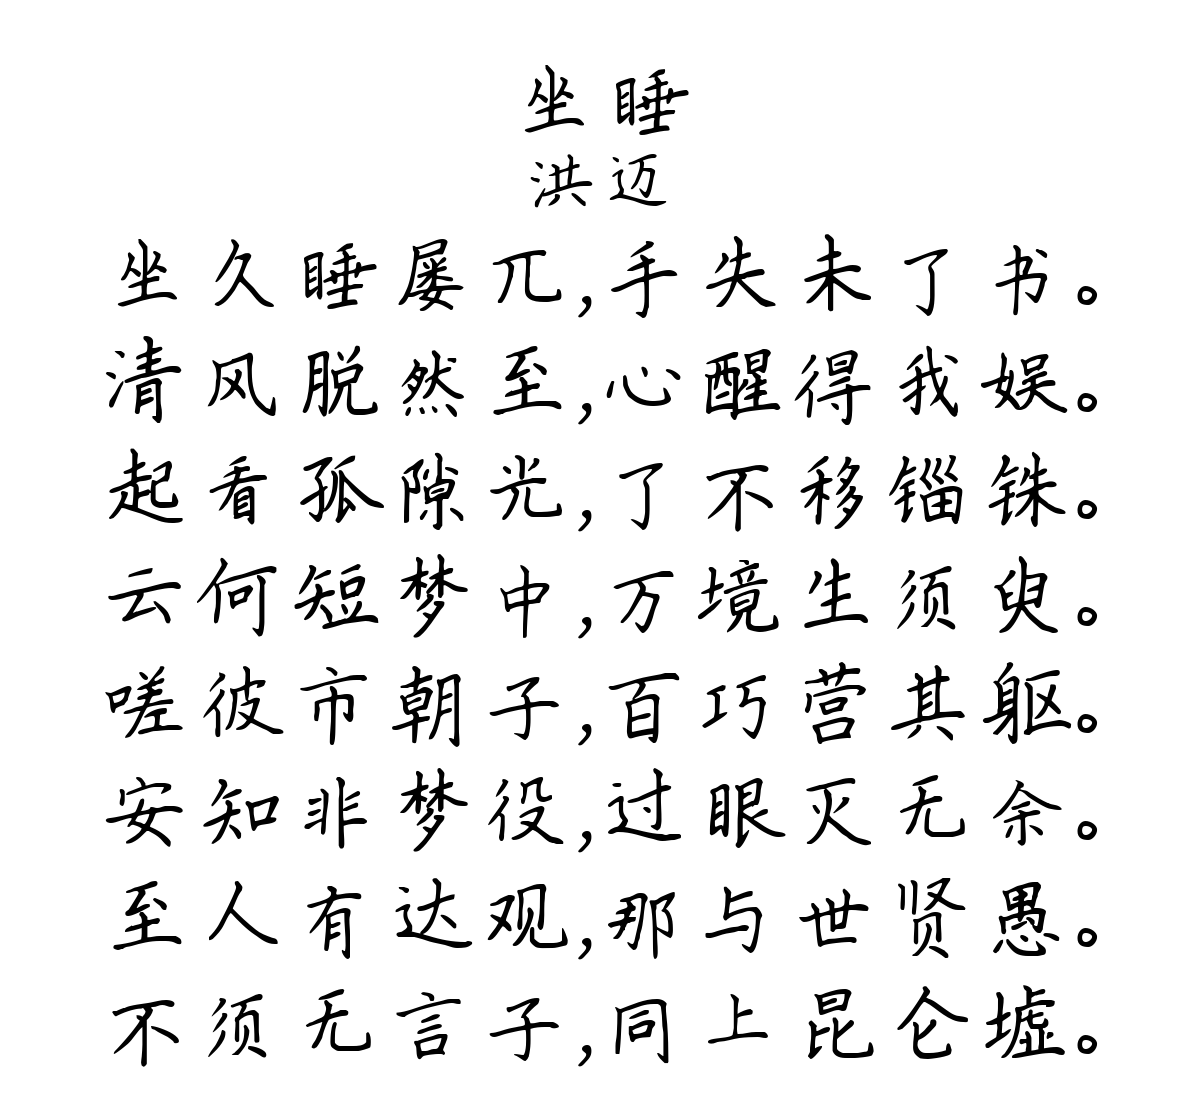 坐睡
洪迈
坐久睡屡兀,手失未了书。
清风脱然至,心醒得我娱。
起看孤隙光,了不移锱铢。
云何短梦中,万境生须臾。
嗟彼市朝子,百巧营其躯。
安知非梦役,过眼灭无余。
至人有达观,那与世贤愚。
不须无言子,同上昆仑墟。